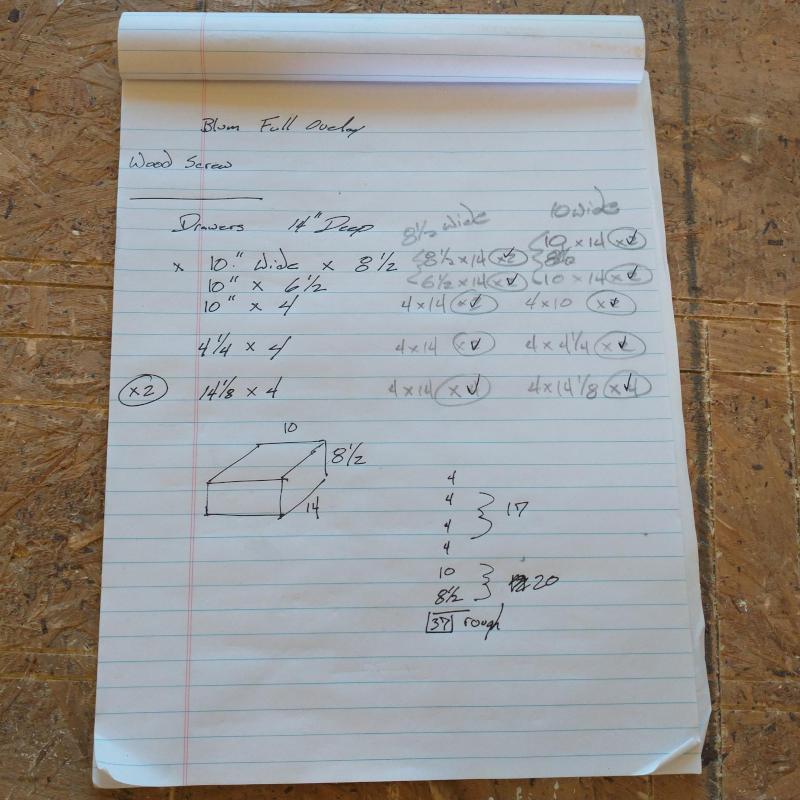 Blum Full Overlay
Wood Screw
Drawers 14" Deep
8½ wide
10 wide
10 x 14
x 10" Wide x 8½
8½ x 14
8½
10" x 6½
6½ x 14
10 x 14
10" x 4
4 x 14
4 x 10
4¼ x 4
4 x 14
4 x 4¼
x2
14⅛ x 4
4 x 14 x4
4 x 14⅛ x4
10
8½
14
4
4
17
4
4
10
20
8½
37 rough